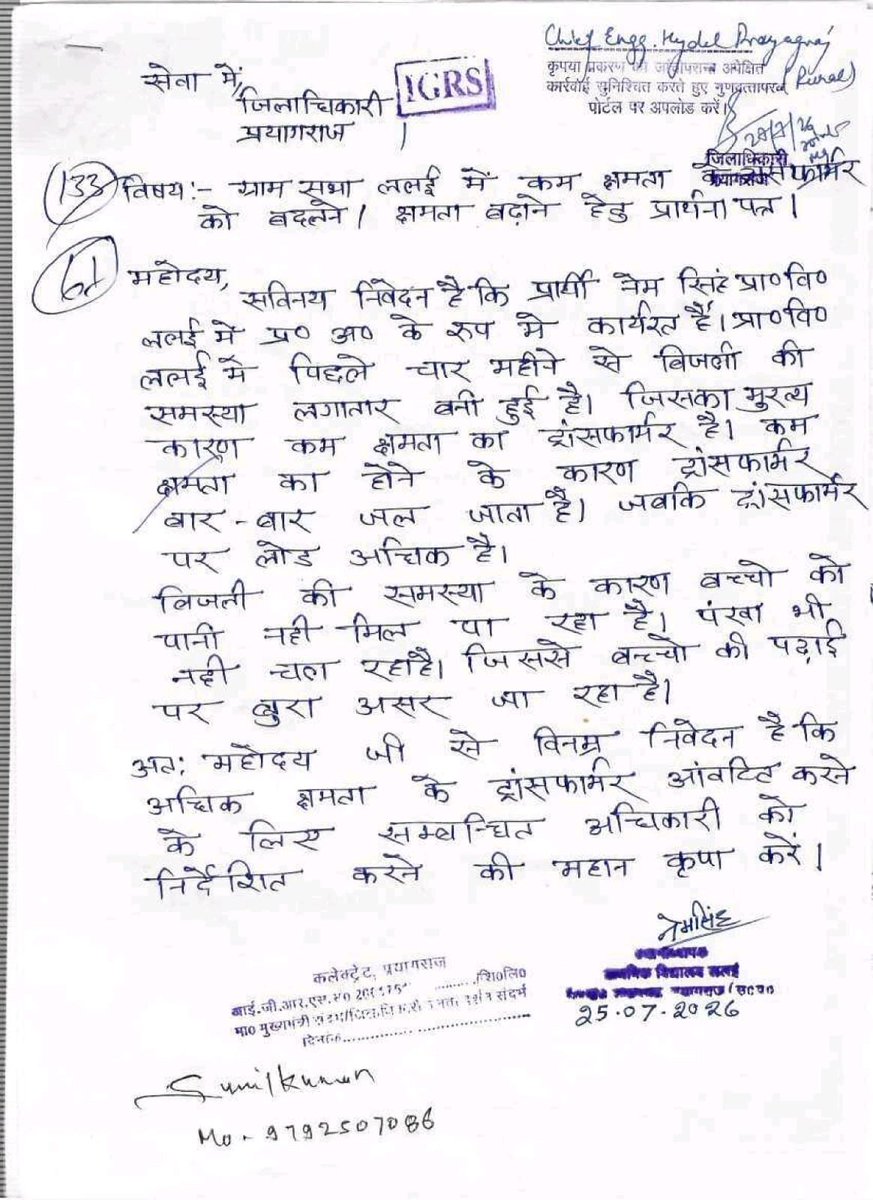 Chief Engg. Hydel Prayagraj
(Rural)
कृपया प्रकरण की अपेक्षित
कार्रवाई सुनिश्चित करते हुए गुणवत्तापरक
पोर्टल पर अपलोड करें।
जिलाधिकारी
प्रयागराज
IGRS
सेवा में,
जिलाधिकारी
प्रयागराज।
133
विषय:- ग्राम सभा ललई में कम क्षमता के ट्रांसफार्मर
को बदलने/ क्षमता बढ़ाने हेतु प्रार्थना पत्र।
महोदय,
सविनय निवेदन है कि प्रार्थी प्रेम सिंह प्रा० वि०
ललई में प्र० अ० के रूप मे कार्यरत हैं। प्रा० वि०
ललई में पिछले चार महीने से बिजली की
समस्या लगातार बनी हुई है। जिसका मुख्य
कारण कम क्षमता का ट्रांसफार्मर है। कम
क्षमता का होने के कारण ट्रांसफार्मर
बार-बार जल जाता है। जबकि ट्रांसफार्मर
पर लोड अधिक है।
बिजली की समस्या के कारण बच्चो को
पानी नही मिल पा रहा है। पंखा भी
नही चल रहा है। जिससे बच्चो की पढ़ाई
पर बुरा असर जा रहा है।
अत: महोदय जी से विनम्र निवेदन है कि
अधिक क्षमता के ट्रांसफार्मर आंवटित करने
के लिए सम्बन्धित अधिकारी को
निर्देशित करने की महान कृपा करें।
प्रेमसिंह
प्राथमिक विद्यालय ललई
25.07.2026
कलेक्ट्रेट, प्रयागराज
आई.जी.आर.एस. शि०लि०
मा० मुख्यमंत्री संदर्भ
दिनांक
Sunil Kumar
Mo - 9792507086